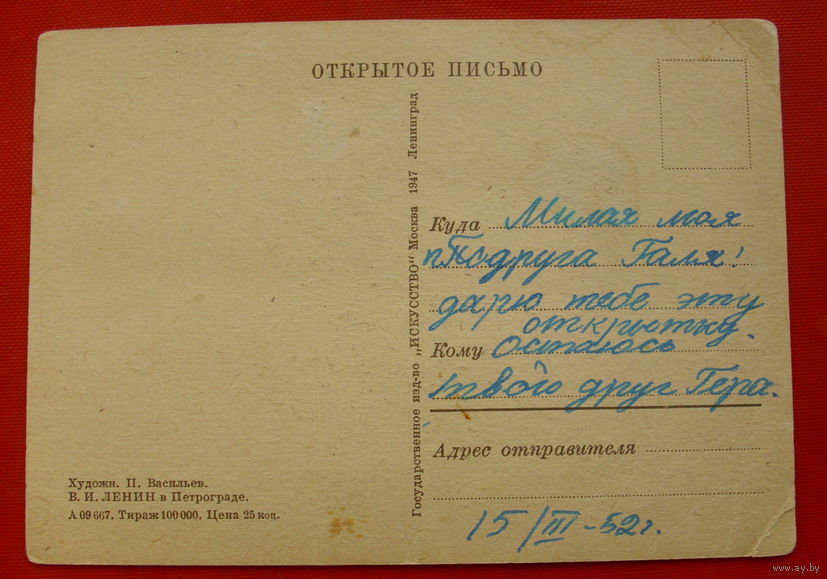 ОТКРЫТОЕ ПИСЬМО
Государственное изд-во „ИСКУССТВО" Москва 1947 Ленинград
Куда Милая моя
подруга Галя!
дарю тебе эту
открытку.
Кому Остаюсь
твой друг Гера.
Адрес отправителя
15/III-52г.
Художн. П. Васильев.
В. И. ЛЕНИН в Петрограде.
А 09667. Тираж 100 000. Цена 25 коп.
www.ay.by